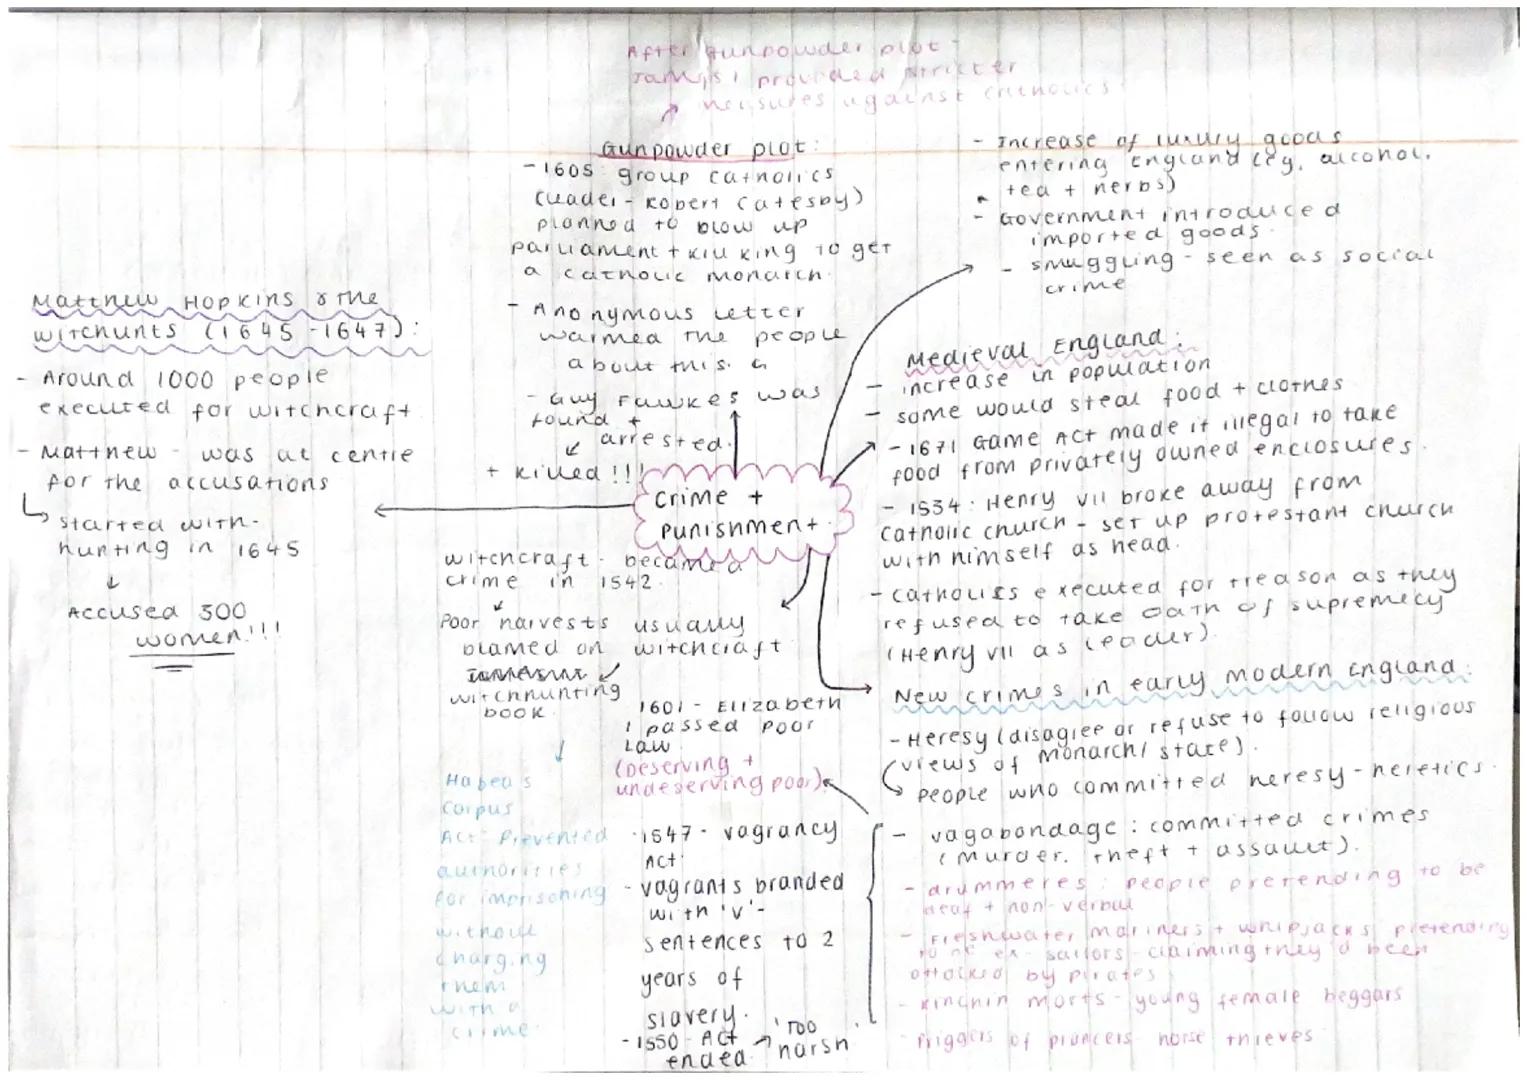 After gunpowder plot -
James I provided stricter
measures against catholics.
Gunpowder plot:
- 1605: group catholics
(leader - Robert Catesby)
planned to blow up
parliament + kill king to get
a catholic monarch.
- Anonymous letter
warned the people
about this.
- Guy Fawkes was
found +
arrested.
+ killed !!!
- Increase of luxury goods
entering England (eg. alcohol,
tea + herbs)
- Government introduced
imported goods.
- smuggling - seen as social
crime
Matthew Hopkins & the
witchunts (1645 - 1647):
- Around 1000 people
executed for witchcraft
- Matthew - was at centre
for the accusations
started with-
hunting in 1645
Accused 300
women!!!
Crime +
Punishment.
Medieval England:
- increase in population
- some would steal food + clothes
- 1671 Game Act made it illegal to take
food from privately owned enclosures.
- 1534: Henry VII broke away from
Catholic church - set up protestant church
with himself as head.
- Catholiss executed for treason as they
refused to take oath of supremecy
(Henry VII as leader).
witchcraft - became a
crime in 1542.
Poor harvests usually
blamed on witchcraft
witchhunting
book
1601 - Elizabeth
I passed Poor
Law
(Deserving +
undeserving poor).
- 1547 - vagrancy
Act
- vagrants branded
with 'v' -
sentences to 2
years of
slavery.
- 1550 - Act
ended
'Too
harsh'
Habeas
Corpus
Act: Prevented
authorities
for imprisoning
without
charging
them
with a
crime.
New crimes in early modern England:
- Heresy (disagree or refuse to follow religious
views of monarch/ state).
people who committed heresy - heretics.
- vagabondage: committed crimes
(murder, theft + assault).
- drummeres: people pretending to be
deaf + non-verbal
- Freshwater mariners + whipjacks pretending
to be ex-sailors - claiming they'd been
attacked by pirates
- kinchin morts - young female beggars
- Priggers of prancers - horse thieves